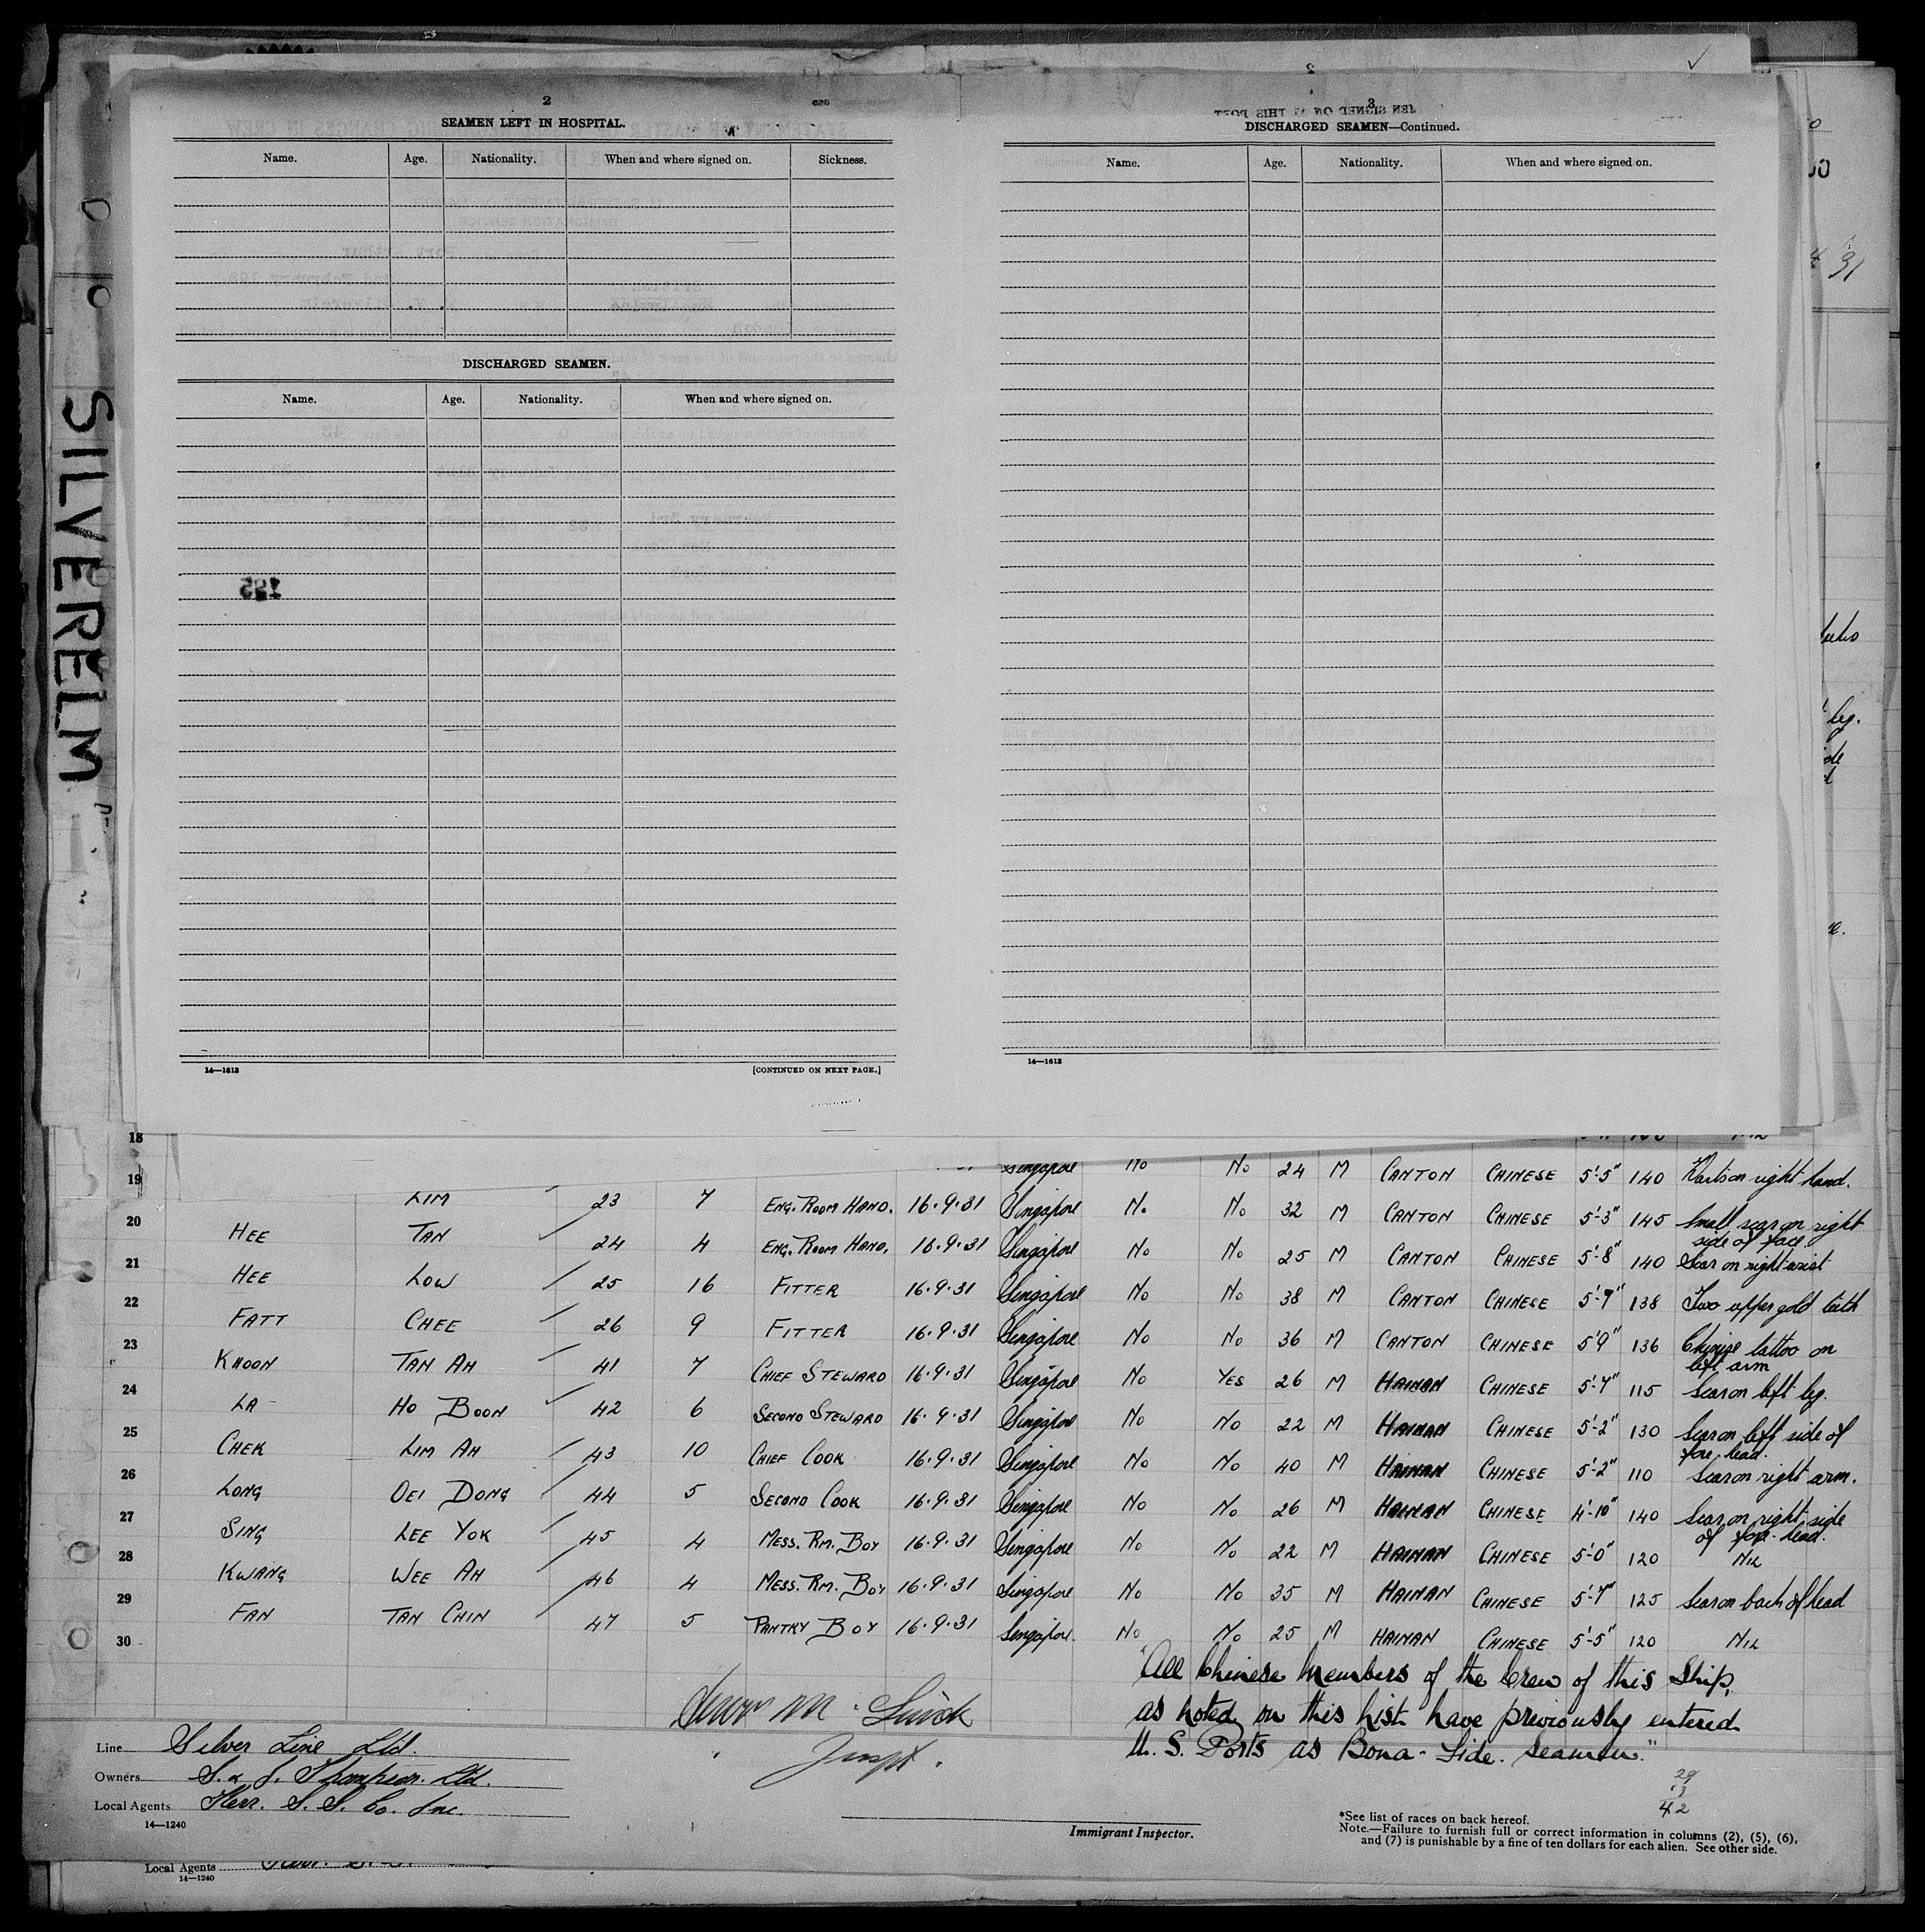 SILVERELM
2
SEAMEN LEFT IN HOSPITAL.
Name. Age. Nationality. When and where signed on. Sickness.
DISCHARGED SEAMEN.
Name. Age. Nationality. When and where signed on.
195
14—1613 [CONTINUED ON NEXT PAGE.]
3
DISCHARGED SEAMEN—Continued.
Name. Age. Nationality. When and where signed on.
14—1613
31
leg.
18
19 Singapore No No 24 M CANTON CHINESE 5'-5" 140 right hand.
LIM 23 7 ENG. ROOM HAND. 16.9.31 Singapore No No 32 M CANTON CHINESE 5'-3" 145 Small scar on right side of face.
20 HEE TAN 24 4 ENG. ROOM HAND. 16.9.31 Singapore No No 25 M CANTON CHINESE 5'-8" 140 Scar on right wrist
21 HEE LOW 25 16 FITTER 16.9.31 Singapore No No 38 M CANTON CHINESE 5'-7" 138 Two upper gold teeth
22 FATT CHEE 26 9 FITTER 16.9.31 Singapore No No 36 M CANTON CHINESE 5'9" 136 Chinese tattoo on left arm
23 KHOON TAN AH 41 7 CHIEF STEWARD 16.9.31 Singapore No YES 26 M HAINAN CHINESE 5'-7" 115 Scar on left leg.
24 LA HO BOON 42 6 SECOND STEWARD 16.9.31 Singapore No No 22 M HAINAN CHINESE 5'-2" 130 Scar on left side of fore-head.
25 CHEK LIM AH 43 10 CHIEF COOK 16.9.31 Singapore No No 40 M HAINAN CHINESE 5'-2" 110 Scar on right arm.
26 LONG OEI DONG 44 5 SECOND COOK 16.9.31 Singapore No No 26 M HAINAN CHINESE 4'-10" 140 Scar on right side of fore-head.
27 SING LEE YOK 45 4 MESS. RM. BOY 16.9.31 Singapore No No 22 M HAINAN CHINESE 5'-0" 120 NIL
28 KWANG WEE AH 46 4 MESS. RM. BOY 16.9.31 Singapore No No 35 M HAINAN CHINESE 5'-7" 125 Scar on back of head
29 FAN TAN CHIN 47 5 PANTRY BOY 16.9.31 Singapore. No No 25 M HAINAN CHINESE 5'-5" 120 NIL
30
"All Chinese Members of the Crew of this Ship,
as noted on this list have previously entered
U.S. Ports as Bona-Fide. Seamen."
Inspt.
Line Silver Line Ltd.
Owners S. & J. Thompson. Ltd.
Local Agents Kerr. S. S. Co. Inc.
14—1240
Immigrant Inspector.
29
13
42
*See list of races on back hereof.
Note.—Failure to furnish full or correct information in columns (2), (5), (6),
and (7) is punishable by a fine of ten dollars for each alien. See other side.
Local Agents
14—1240